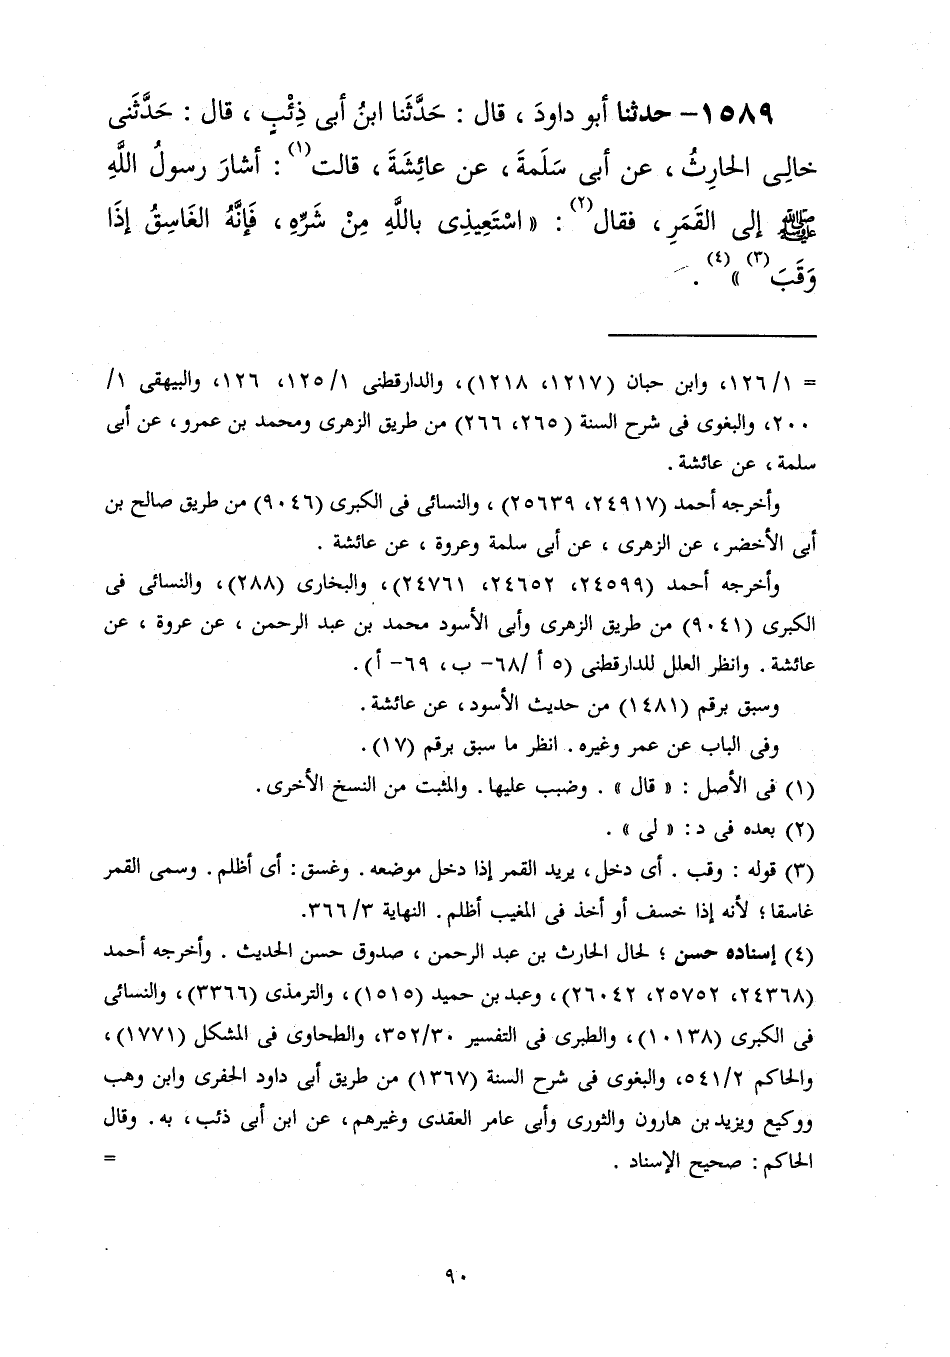 ١٥٨٩- حدثنا أبو داودَ ، قال : حَدَّثَنا ابنُ أبى ذِئْبٍ ، قال : حَدَّثَنى
خالِى الحارِثُ ، عن أبى سَلَمةَ ، عن عائِشَةَ ، قالت(١) : أشارَ رسولُ اللَّهِ
ﷺ إلى القَمَرِ ، فقال(٢) : « اسْتَعِيذِى باللَّهِ مِنْ شَرِّهِ ، فَإِنَّهُ الغَاسِقُ إِذَا
وَقَبَ(٣) »(٤) .
= ١/ ١٢٦، وابن حبان (١٢١٧، ١٢١٨)، والدارقطنى ١/ ١٢٥، ١٢٦، والبيهقى ١/
٢٠٠، والبغوى فى شرح السنة (٢٦٥، ٢٦٦) من طريق الزهرى ومحمد بن عمرو، عن أبى
سلمة ، عن عائشة .
وأخرجه أحمد (٢٤٩١٧، ٢٥٦٣٩) ، والنسائى فى الكبرى (٩٠٤٦) من طريق صالح بن
أبى الأخضر، عن الزهرى ، عن أبى سلمة وعروة ، عن عائشة .
وأخرجه أحمد (٢٤٥٩٩، ٢٤٦٥٢، ٢٤٧٦١)، والبخارى (٢٨٨)، والنسائى فى
الكبرى (٩٠٤١) من طريق الزهرى وأبى الأسود محمد بن عبد الرحمن ، عن عروة ، عن
عائشة . وانظر العلل للدارقطنى (٥ أ /٦٨- ب، ٦٩- أ).
وسبق برقم (١٤٨١) من حديث الأسود، عن عائشة .
وفى الباب عن عمر وغيره . انظر ما سبق برقم (١٧).
(١) فى الأصل : « قال » . وضبب عليها . والمثبت من النسخ الأخرى .
(٢) بعده فى د: « لى » .
(٣) قوله : وقب . أى دخل، يريد القمر إذا دخل موضعه . وغسق: أى أظلم . وسمى القمر
غاسقا؛ لأنه إذا خسف أو أخذ فى المغيب أظلم . النهاية ٣/ ٣٦٦.
(٤) إسناده حسن ؛ لحال الحارث بن عبد الرحمن ، صدوق حسن الحديث . وأخرجه أحمد
(٢٤٣٦٨، ٢٥٧٥٢، ٢٦٠٤٢)، وعبد بن حميد (١٥١٥)، والترمذى (٣٣٦٦)، والنسائى
فى الكبرى (١٠١٣٨)، والطبرى فى التفسير ٣٠/ ٣٥٢، والطحاوى فى المشكل (١٧٧١)،
والحاكم ٢/ ٥٤١، والبغوى فى شرح السنة (١٣٦٧) من طريق أبى داود الحفرى وابن وهب
ووكيع ويزيد بن هارون والثورى وأبى عامر العقدى وغيرهم، عن ابن أبى ذئب، به . وقال
الحاكم : صحيح الإسناد . =
٩٠